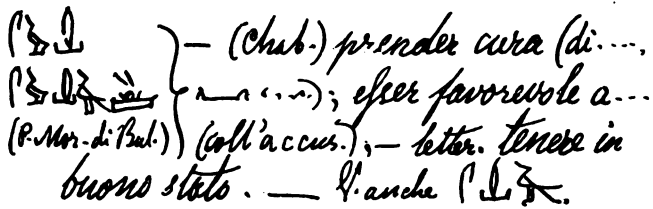 — (Chab.) prender cura (di....,
); esser favorevole a...
(P. Mor. di Bul.) (coll'accus.); — letter. tenere in
buono stato. — V. anche